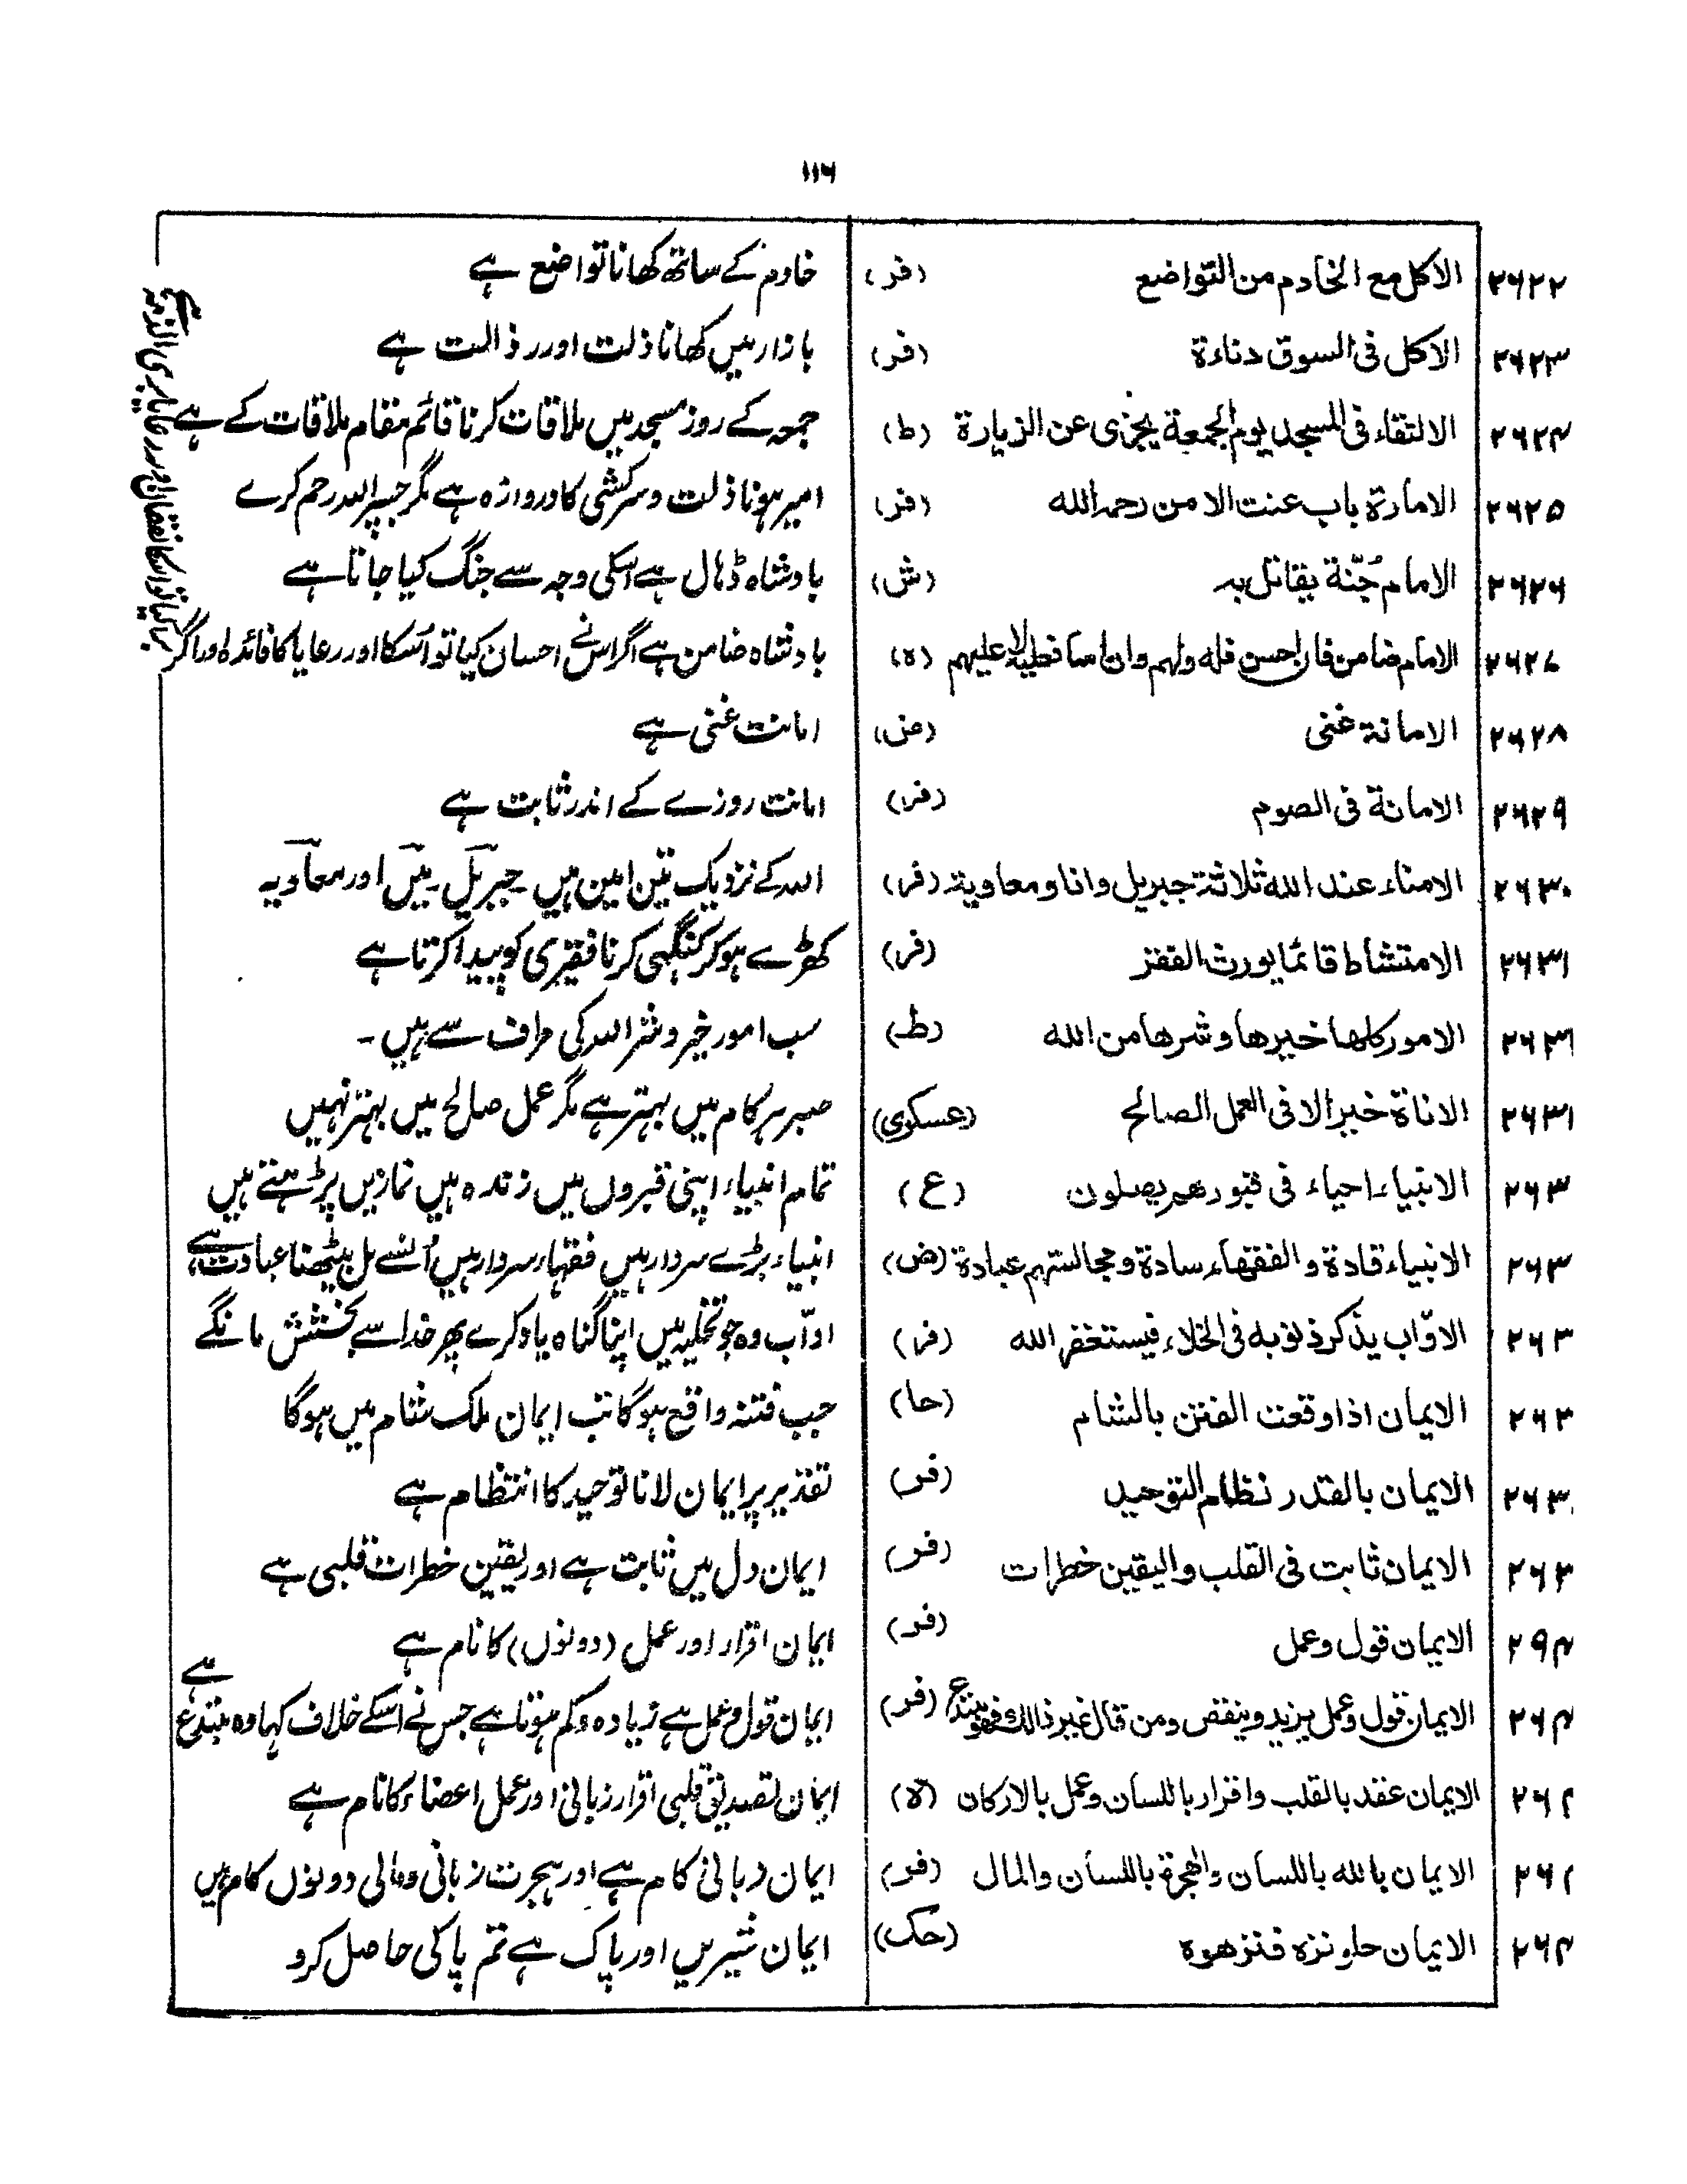 ۱۱۶
۲۶۲۲ الاکل مع الخادم من التواضع (فر) خادم کے ساتھ کھانا تواضع ہے
۲۶۲۳ الاکل فی السوق دناءة (فر) بازار میں کھانا ذلت اور رذالت ہے
۲۶۲۴ الالتقاء فی المسجد یوم الجمعة یجزی عن الزیارة (ط) جمعہ کے روز مسجد میں ملاقات کرنا قائم مقام ملاقات کے ہے
۲۶۲۵ الامارة باب عنت الا من رحمہ الله (فر) امیر ہونا ذلت و سرکشی کا دروازہ ہے مگر جسپر اللہ رحم کرے
۲۶۲۶ الامام جُنّة یقاتل بہ (ش) بادشاہ ڈہال ہے اسکی وجہ سے جنگ کیا جاتا ہے
۲۶۲۷ الامام ضامن فان احسن فلہ ولہم وان اسا فعلیہ لا علیہم (ہ) بادشاہ ضامن ہے اگر اس نے احسان کیا تو اُسکا اور رعایا کا فائدہ اور اگر
۲۶۲۸ الامانة غنی (ض) امانت غنی ہے
۲۶۲۹ الامانة فی الصوم (فر) امانت روزے کے اندر ثابت ہے
۲۶۳۰ الامناء عند الله ثلاثة جبریل وانا ومعاویة (فر) اللہ کے نزدیک تین امین ہیں۔ جبریل۔ میں اور معاویہ
۲۶۳۱ الامتشاط قائما یورث الفقر (فر) کھڑے ہو کر کنگہی کرنا فقیری کو پیدا کرتا ہے
۲۶۳ الامور کلها خیرها وشرها من الله (ط) سب امور خیر و شر اللہ کی طرف سے ہیں ۔
۲۶۳ الاناة خیر الا فی العمل الصالح (عسکری) صبر ہر کام میں بہتر ہے مگر عمل صالح میں بہتر نہیں
۲۶۳ الانبیاء احیاء فی قبورهم یصلون (ع) تمام انبیاء اپنی قبروں میں زندہ ہیں نمازیں پڑہتے ہیں
۲۶۳ الانبیاء قادة والفقهاء سادة ومجالستهم عبادة (ض) انبیاء بڑے سردار ہیں فقہاء سردار ہیں اُنسے مل بیٹھنا عبادت ہے
۲۶۳ الاوّاب یذکر ذنوبه فی الخلاء فیستغفر الله (فر) اوّاب وہ جو تخلیہ میں اپنا گناہ یاد کرے پھر خدا سے بخشش مانگے
۲۶۳ الایمان اذا وقعت الفتن بالشام (حا) جب فتنہ واقع ہوگا تب ایمان ملک شام میں ہوگا
۲۶۳ الایمان بالقدر نظام التوحید (فر) تقدیر پر ایمان لانا توحید کا انتظام ہے
۲۶۳ الایمان ثابت فی القلب والیقین خطرات (فر) ایمان دل میں ثابت ہے اور یقین خطرات قلبی ہے
۲۹۴ الایمان قول وعمل (فر) ایمان اقرار اور عمل (دونوں) کا نام ہے
۲۶۴ الایمان قول وعمل یزید وینقص ومن قال غیر ذالک فهو مبتدع (فر) ایمان قول و عمل ہے زیادہ و کم ہوتا ہے جس نے اسکے خلاف کہا وہ مبتدع ہے
۲۶ الایمان عقد بالقلب واقرار باللسان وعمل بالارکان (ہ) ایمان تصدیق قلبی اقرار زبانی اور عمل اعضاء کا نام ہے
۲۶ الایمان بالله باللسان والهجرة باللسان والمال (فر) ایمان زبانی کام ہے اور ہجرت زبانی و مالی دونوں کام ہیں
۲۶۴ الایمان حلو نزہ فنزهوه (حک) ایمان شیریں اور پاک ہے تم پاکی حاصل کرو